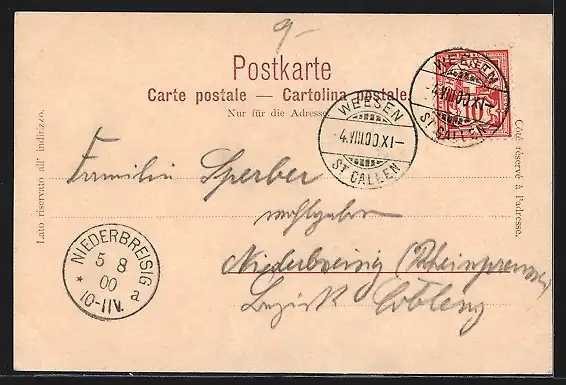 9-
Postkarte
Carte postale — Cartolina postale
Nur für die Adresse
WEESEN
-4.VIII.00.XI-
ST GALLEN
WEESEN
-4.VIII.00.XI-
ST GALLEN
10
Lato riservato all' indirizzo.
Côté réservé à l'adresse.
Familie Sperber
wohlgeboren
Niederbreisig (Rheinpreussen)
Bezirk Coblenz
NIEDERBREISIG
5 8
00
* 10-11V. a